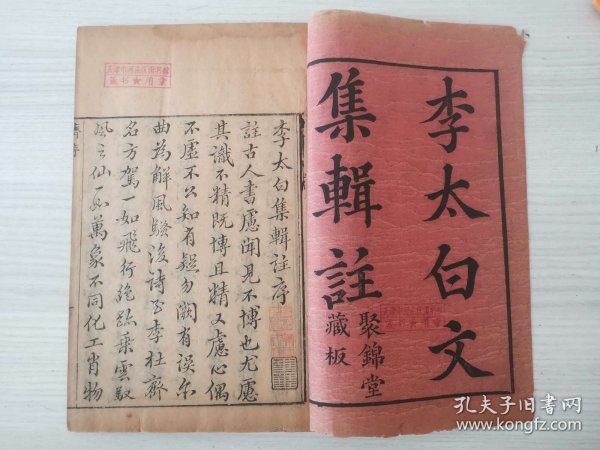 李太白文
集輯註
聚錦堂
藏板
李太白集輯註序
註古人書慮聞見不博也尤慮
其識不精既博且精又慮心偶
不虛不公知有疑勿闕有誤尒
曲為解風騷後詩至李杜齊
名方駕一如飛行絕跡乘雲馭
風之仙一如萬象不同化工肖物
孔夫子旧书网
www.kongfz.com